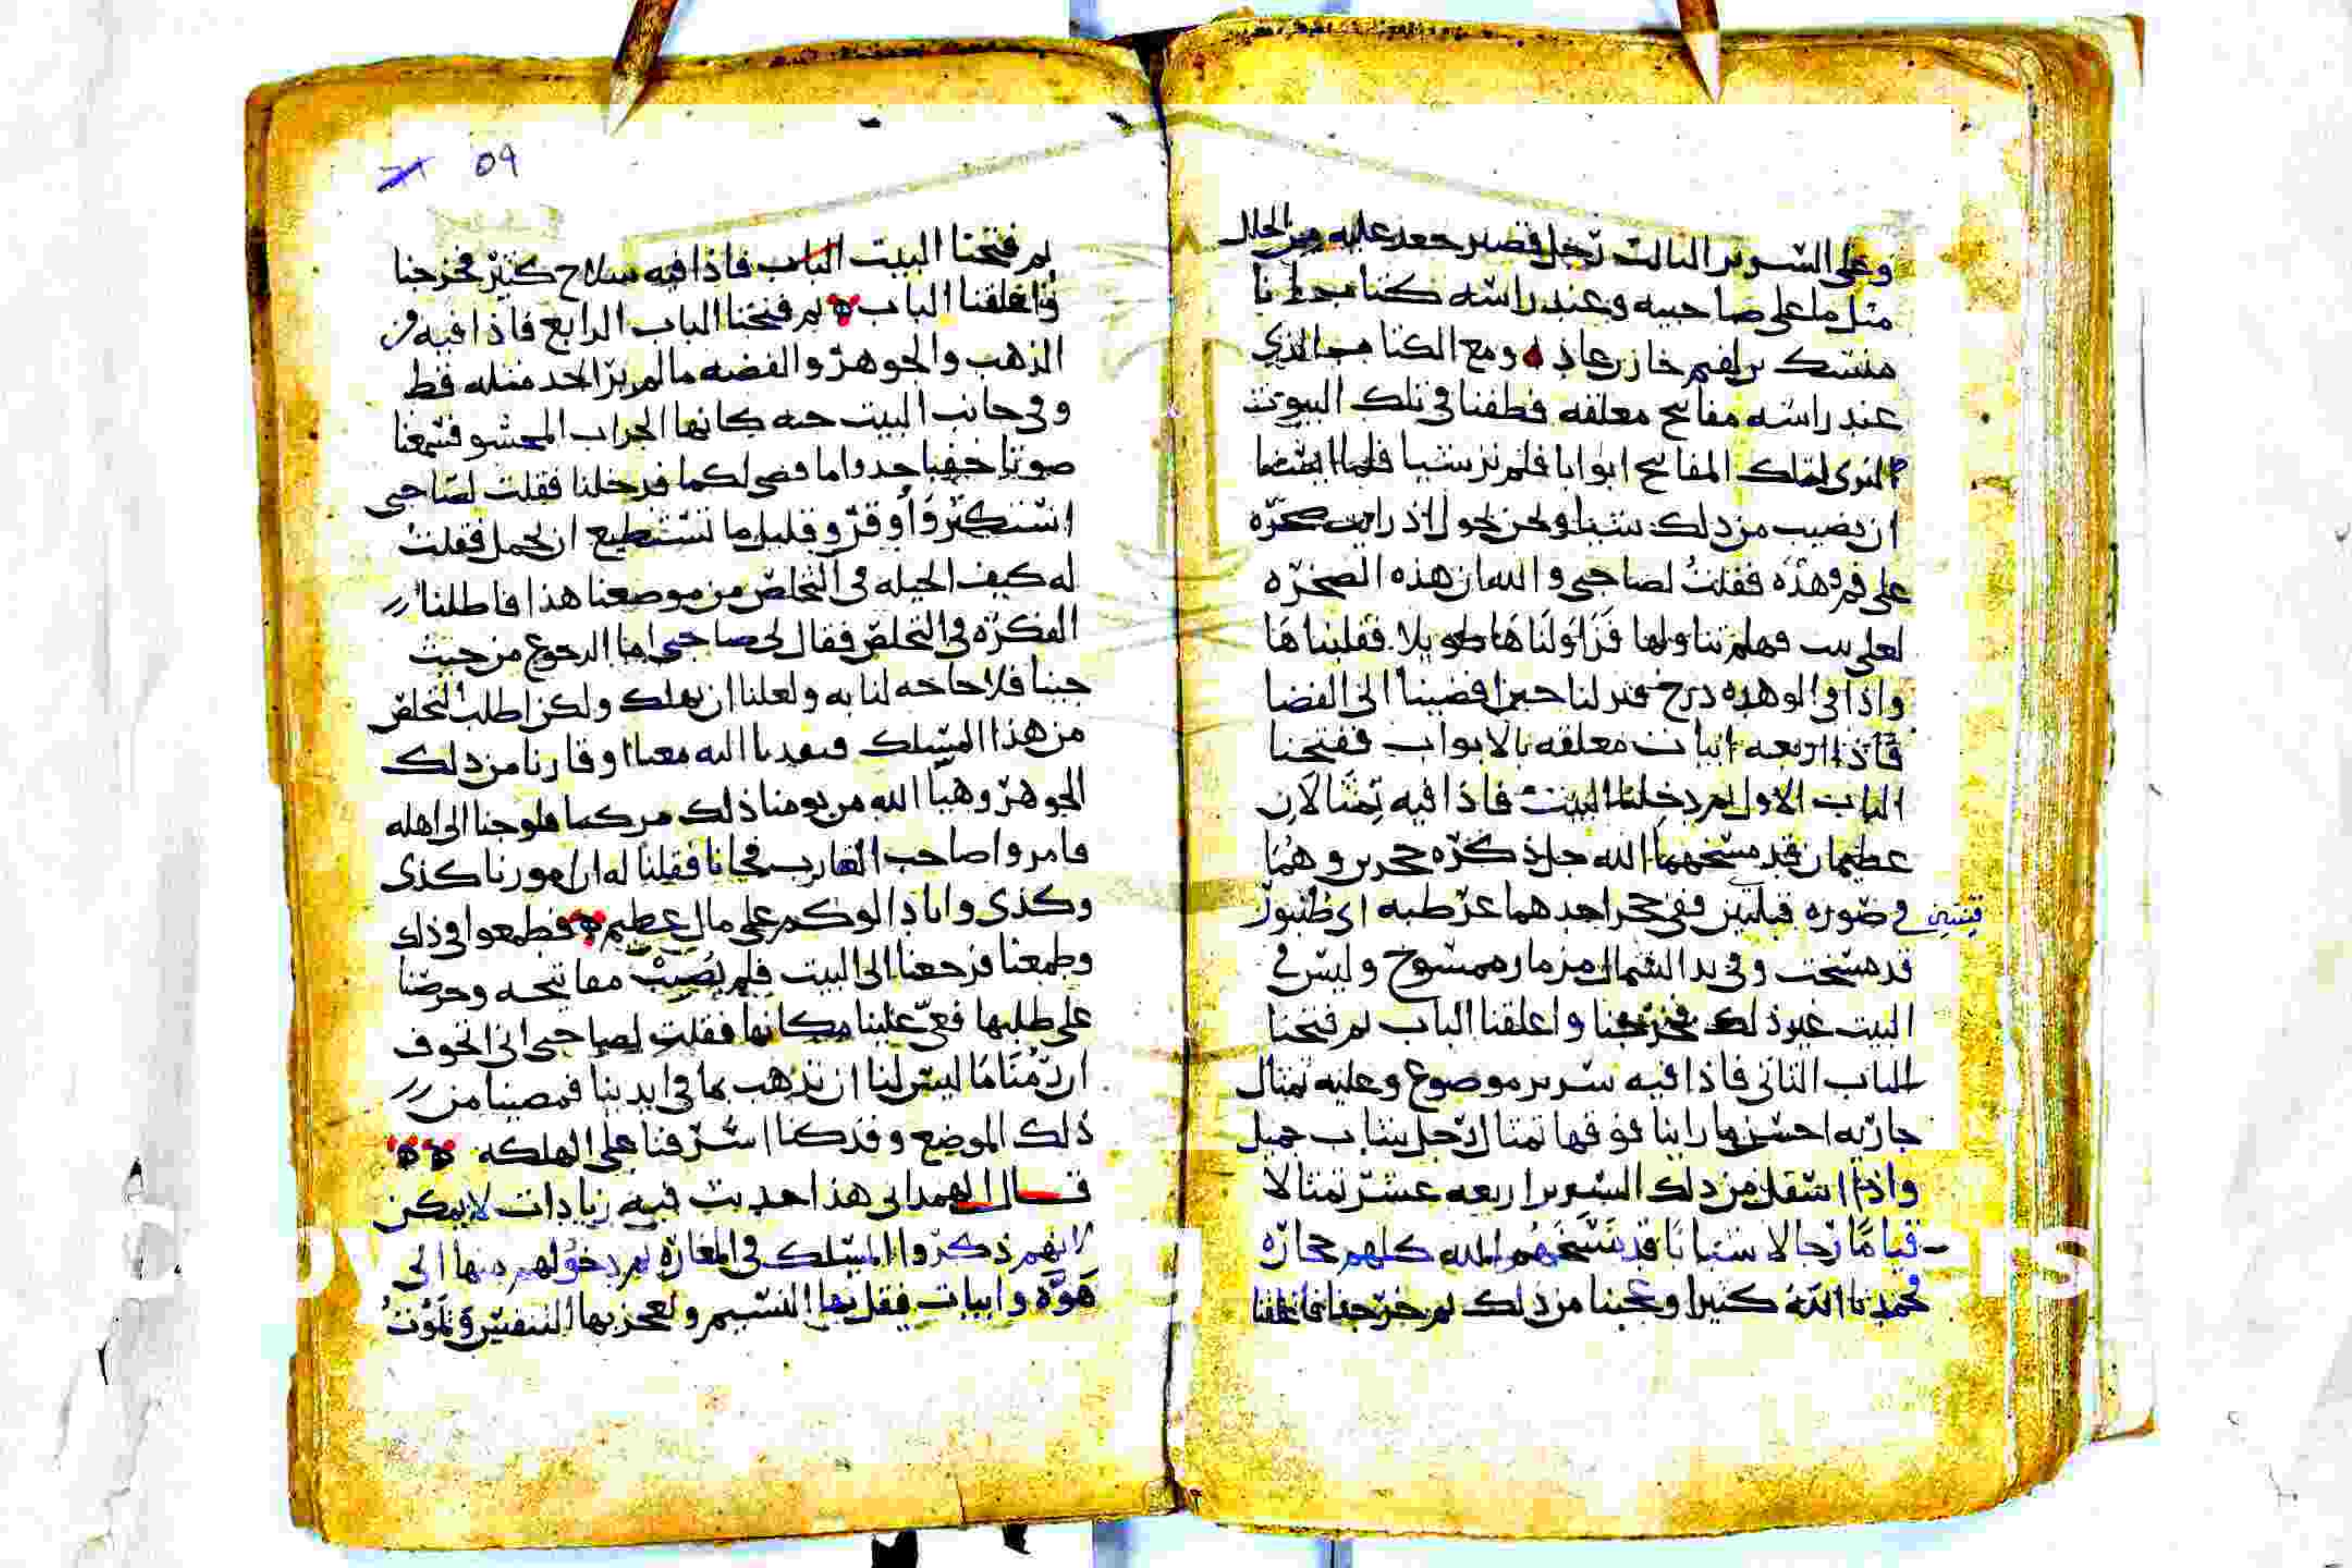 وعلى السرير الثالث رجل قصير جعد عليه من الحلل
مثل ما على صاحبيه وعند راسه كتاب
خازن عاد ومع الكتاب الذي
عند راسه مفاتيح معلقه فطفنا في تلك البيوت
المفاتيح ابوابا فلم نر شيا فلما
ان نصيب من ذلك شيا ونحن نجول اذ رايت صخره
على فم وهده فقلت لصاحبي والله ان هذه الصخره
لعلى بيت فهلم نتناولها فزاولناها طويلا فقلبناها
واذا في الوهده درج فنزلنا حين افضينا الى الفضا
فاذا اربعه ابيات معلقه بالابواب ففتحنا
الباب الاول ثم دخلنا البيت فاذا فيه تمثالان
عظيمان قد مسخهما الله جل ذكره حجرين وهما
في صوره قينتين ففي حجر احدهما عرطبه اى طنبور
قينتين
قد مسخت وفي يد الشمال مزمار ممسوخ وليس في
البيت غير ذلك فخرجنا واغلقنا الباب ثم فتحنا
الباب الثاني فاذا فيه سرير موضوع وعليه تمثال
جاريه احسن ما راينا فوقها تمثال رجل شاب جميل
واذا اسفل من ذلك السرير اربعه عشر تمثالا
قياما رجالا شبابا قد مسخهم الله كلهم حجاره
فحمدنا الله كثيرا وعجبنا من ذلك ثم خرجنا فاغلقنا
09
ثم فتحنا البيت الباب فاذا فيه سلاح كثير فخرجنا
واغلقنا الباب ثم فتحنا الباب الرابع فاذا فيه من
الذهب والجوهر والفضه ما لم ير احد مثله قط
وفي جانب البيت حيه كانها الجراب المحشو فسمعنا
صوتا خفيا خدوا ما قضى لكما فدخلنا فقلت لصاحبي
استكثر واوقر وقليل ما تستطيع ان تحمل فقلت
له كيف الحيله في التخلص من موضعنا هذا فاطلنا
الفكره في التخلص فقال لي صاحبي اما الرجوع من حيث
جينا فلا حاجه لنا به ولعلنا ان نهلك ولكن اطلب التخلص
من هذا المسلك فنفدنا اليه معنا اوقارنا من ذلك
الجوهر وهيا الله من يومنا ذلك مركبا فلوحنا الى اهله
فامروا صاحب القارب فجانا فقلنا له ان امورنا كذى
وكذى وانا دالوكم على مال عظيم فطمعوا في ذلك
وطمعنا فرجعنا الى البيت فلم نصيب مفاتيحه وحرصنا
على طلبها فعمي علينا مكانها فقلت لصاحبي اني اتخوف
ان رمنا ما ليس لنا ان تذهب بما في ايدينا فمضينا من
ذلك الموضع وقد كنا اشرفنا على الهلكه
قال الهمداني هذا حديث فيه زيادات لا يمكن
لانهم ذكروا المسلك في المغاره ثم دخولهم منها الى
هوه وابيات فقل بها النسيم ولعجز بها التنفس وتموت